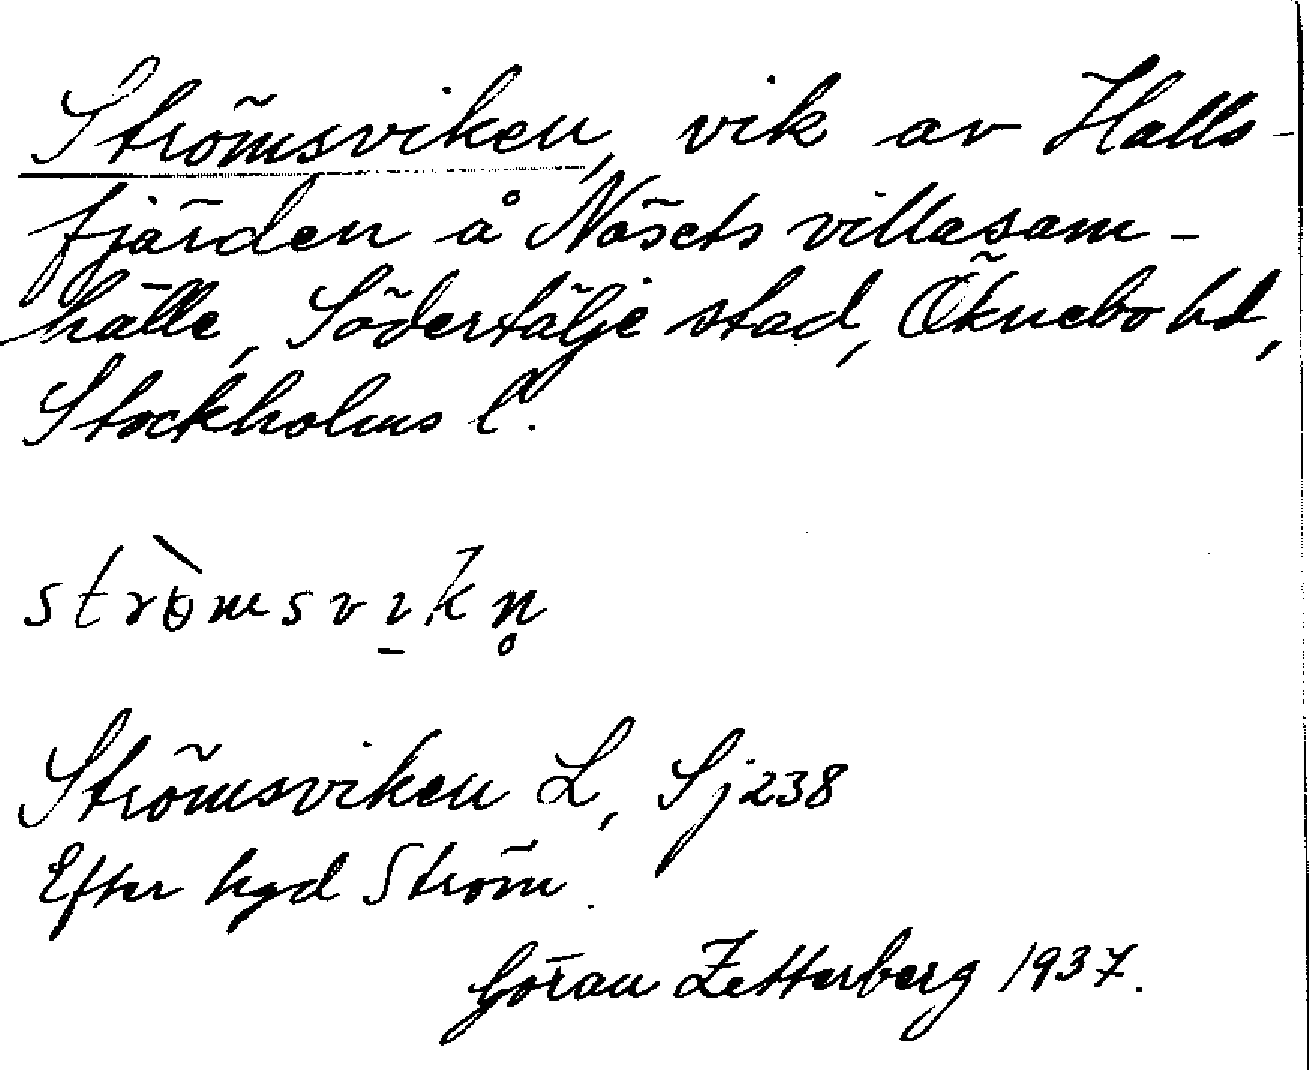 Strömsviken, vik av Halls-
fjärden å Näsets villasam-
hälle, Södertälje stad, Öknebo hd,
Stockholms l.
strömsvikn̥
Strömsviken L, Sj 238
Efter hgd Ström.
Göran Zetterberg 1937.